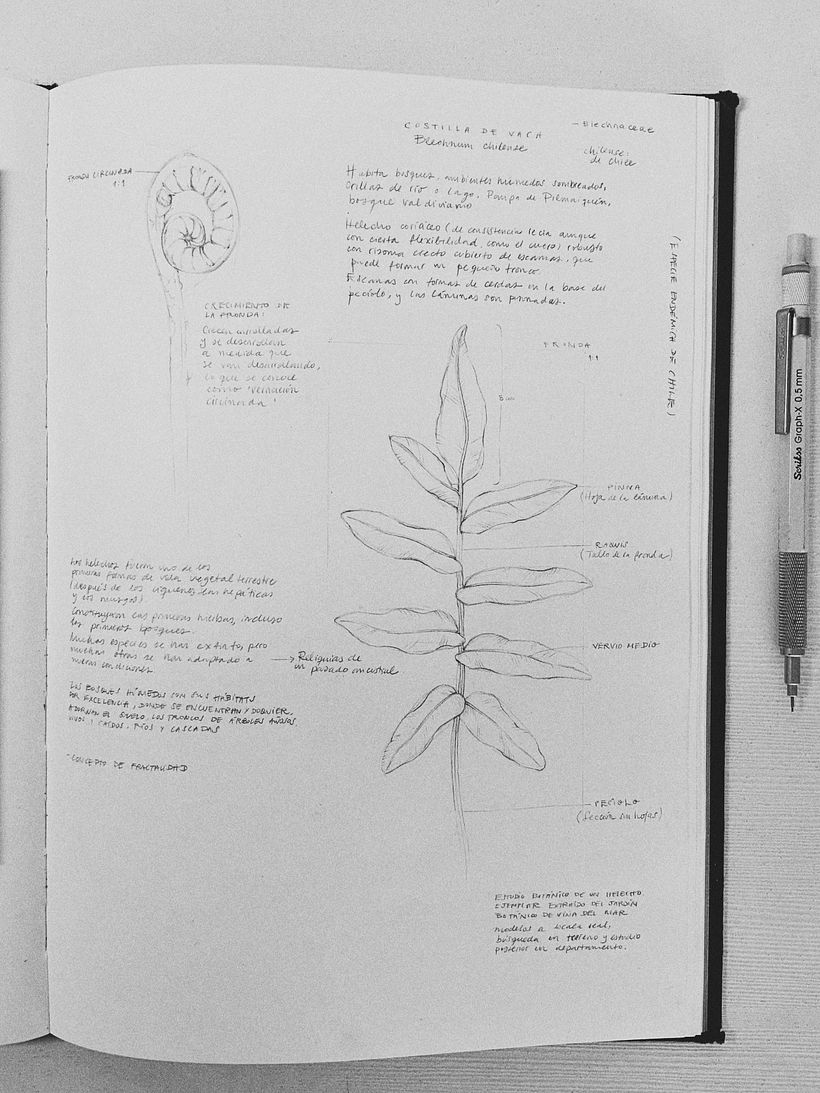 COSTILLA DE VACA
Blechnum chilense
- Blechnaceae
chilense:
de chile
FRONDA CIRCINADA
1:1
Habita bosques, ambientes húmedos sombreados,
orillas de río o lago. Pampa de Pilmaiquén,
bosque valdiviano
Helecho coriáceo (de consistencia recia aunque
con cierta flexibilidad, como el cuero) robusto
con rizoma erecto cubierto de escamas, que
puede formar un pequeño tronco.
Escamas con formas de cerdas en la base del
pecíolo, y las láminas son pinnadas.
(ESPECIE ENDÉMICA DE CHILE)
CRECIMIENTO DE
LA FRONDA:
Crecen enrolladas
y se desenrollan
a medida que
se van desarrollando,
lo que se conoce
como 'vernación
circinada'
FRONDA
1:1
5 cm
PINNA
(Hoja de la lámina)
RAQUIS
(Tallo de la fronda)
NERVIO MEDIO
PECIOLO
(Sección sin hojas)
Los helechos fueron uno de los
primeras formas de vida vegetal terrestre
(después de los líquenes, las hepáticas
y los musgos)
Constituyeron las primeras hierbas, incluso
los primeros bosques.
Muchas especies se han extinto, pero
muchas otras se han adaptado a
nuevas condiciones
Reliquias de
un pasado ancestral
LOS BOSQUES HÚMEDOS SON SUS HÁBITATS
POR EXCELENCIA, DONDE SE ENCUENTRAN X DOQUIER,
ADORNAN EL SUELO, LOS TRONCOS DE ÁRBOLES AÑOSOS,
VIVOS Y CAÍDOS, RÍOS Y CASCADAS
- CONCEPTO DE FRACTALIDAD
ESTUDIO BOTÁNICO DE UN HELECHO.
EJEMPLAR EXTRAÍDO DEL JARDÍN
BOTÁNICO DE VIÑA DEL MAR
modelos a escala real,
búsqueda en terreno y estudio
posterior en departamento.
Scribss Graph-X 0.5 mm